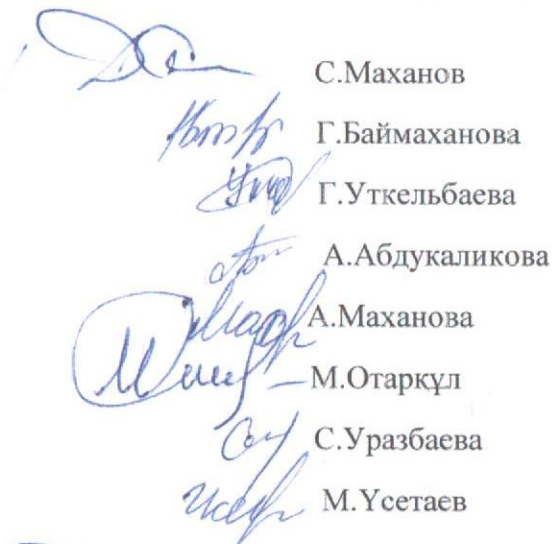 С.Маханов
Г.Баймаханова
Г.Уткельбаева
А.Абдукаликова
А.Маханова
М.Отарқұл
С.Уразбаева
М.Үсетаев